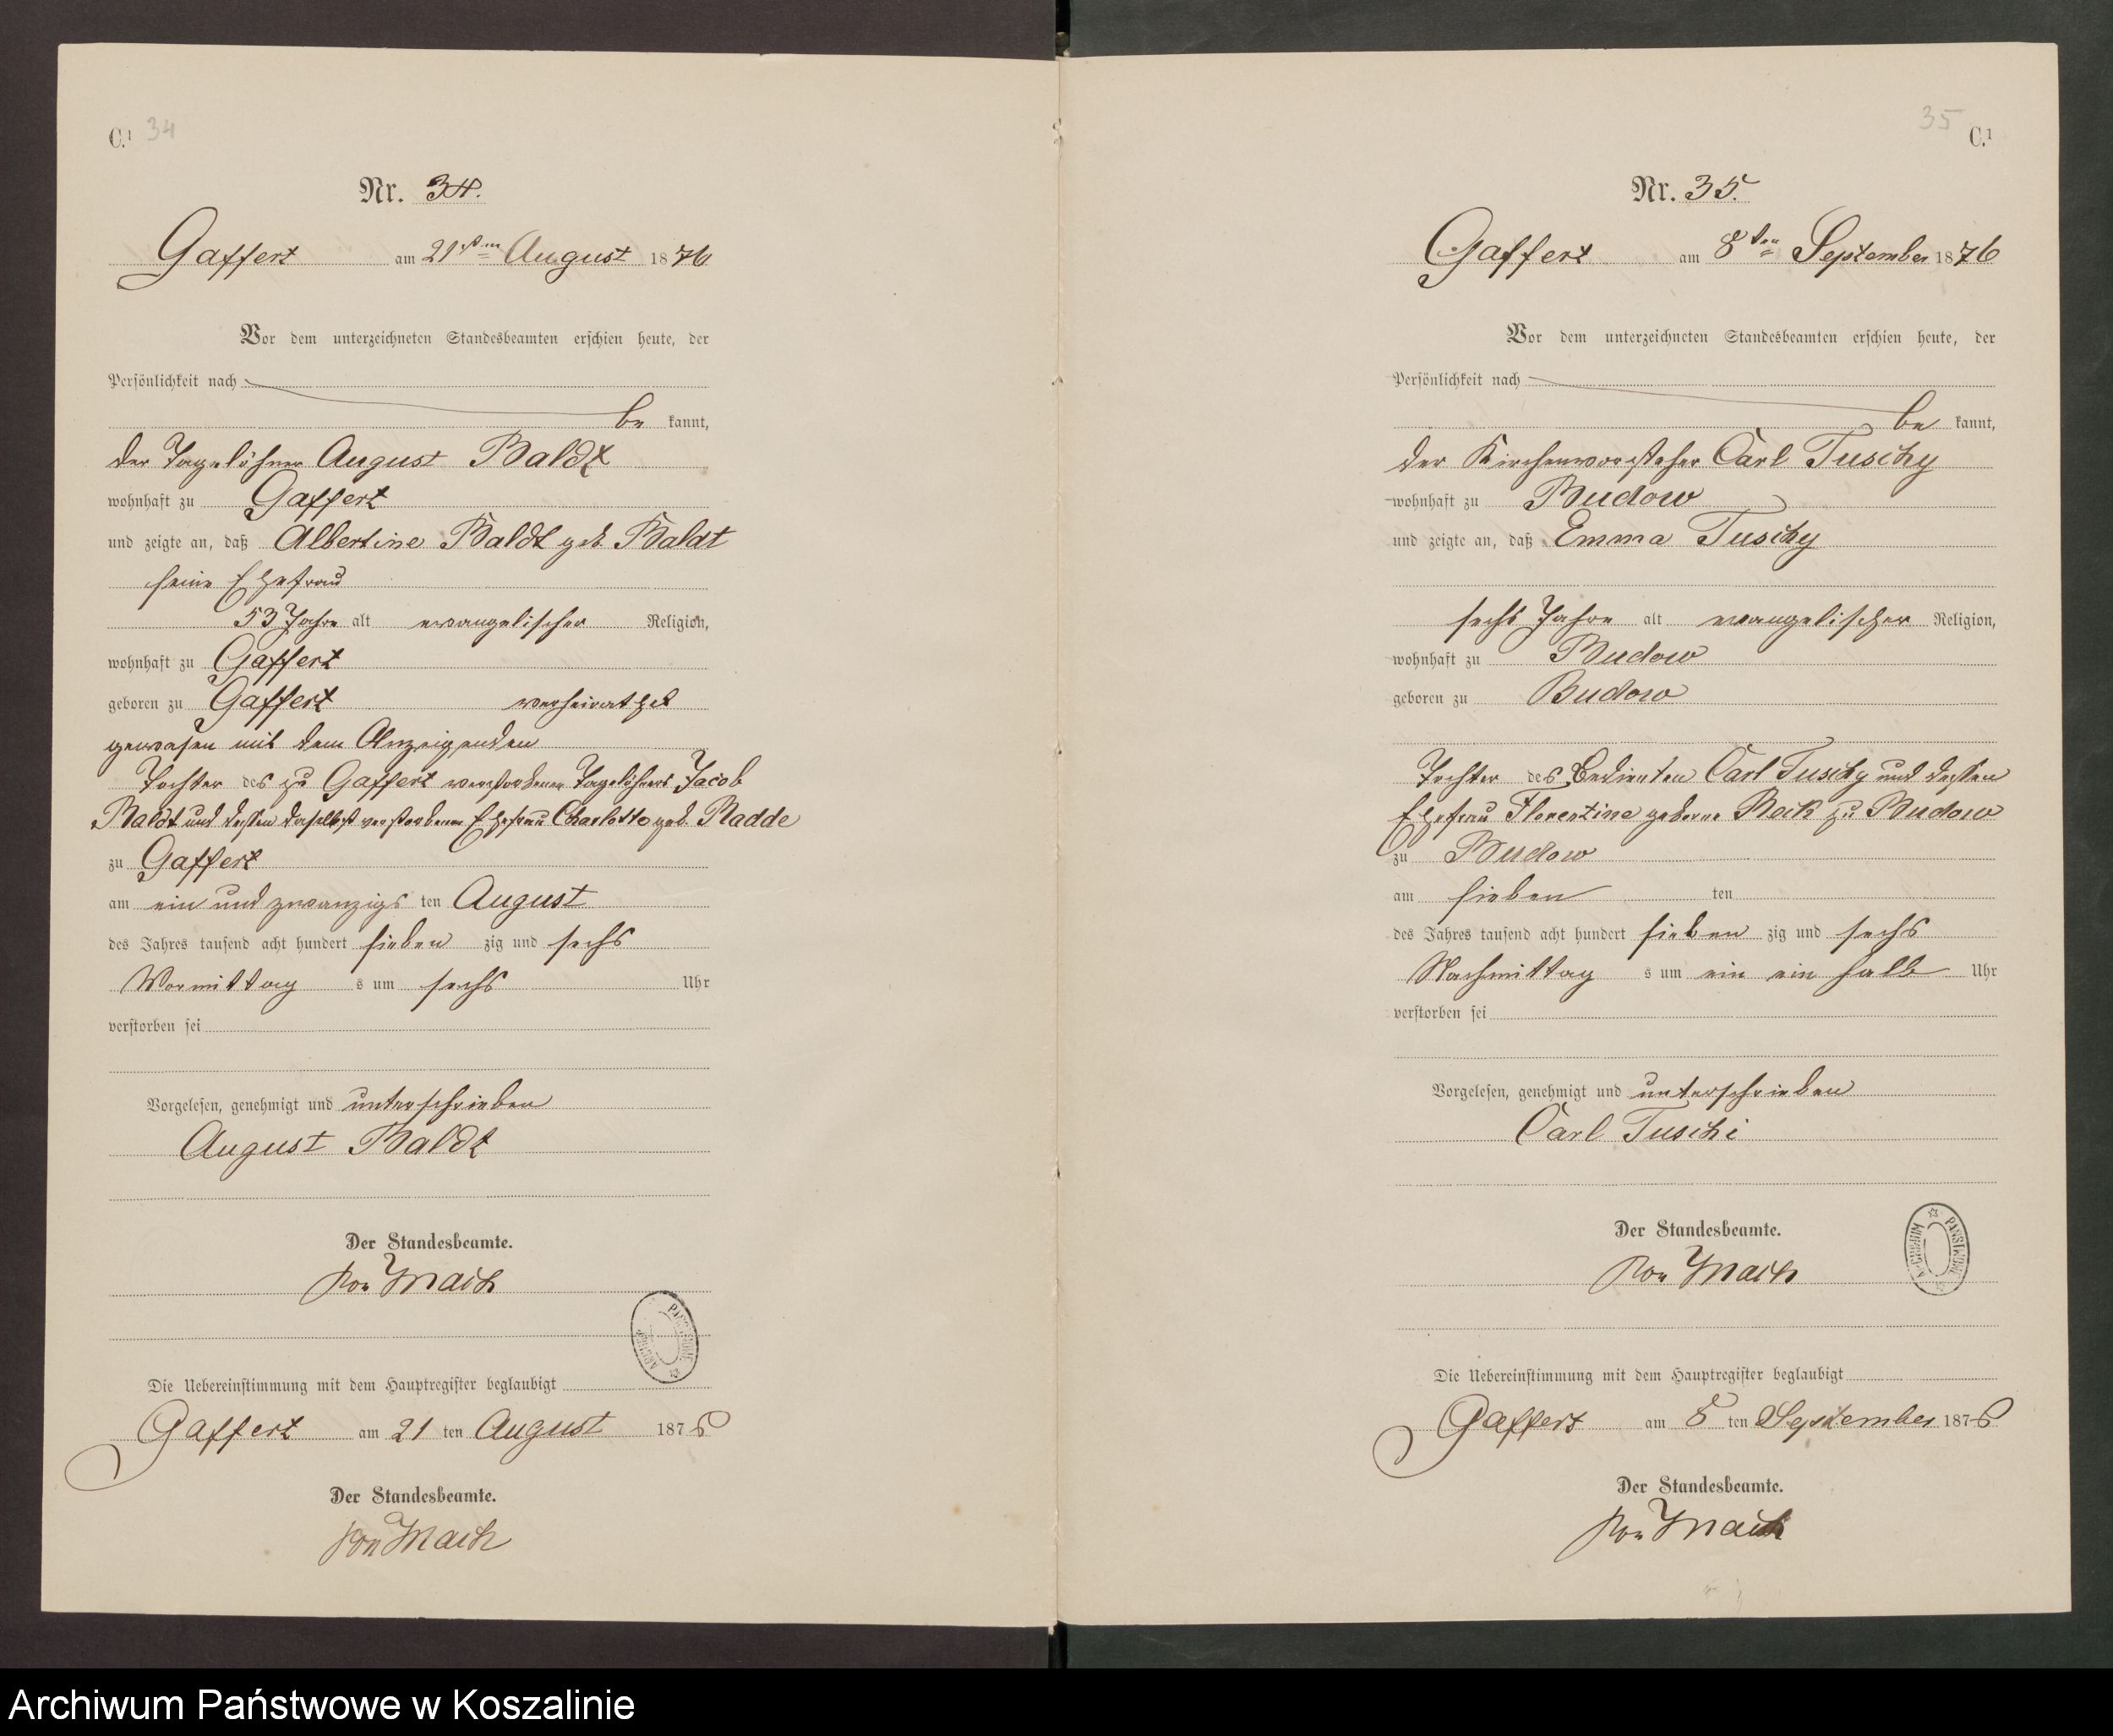 C.¹ 34
Nr. 34.
Gaffert am 21sten August 1876
Vor dem unterzeichneten Standesbeamten erschien heute, der
Persönlichkeit nach
be kannt,
der Tagelöhner August Baldt
wohnhaft zu Gaffert
und zeigte an, daß Albertine Baldt geb. Baldt
seine Ehefrau
53 Jahre alt evangelischer Religion,
wohnhaft zu Gaffert
geboren zu Gaffert verheirathet
gewesen mit dem Anzeigenden
Tochter des zu Gaffert verstorbenen Tagelöhners Jacob
Baldt und dessen daselbst verstorbenen Ehefrau Charlotte geb. Radde
zu Gaffert
am ein und zwanzigs ten August
des Jahres tausend acht hundert sieben zig und sechs
Vormittag s um sechs Uhr
verstorben sei
Vorgelesen, genehmigt und unterschrieben
August Baldt
Der Standesbeamte.
von Mach
Die Uebereinstimmung mit dem Hauptregister beglaubigt
Gaffert am 21 ten August 1876
Der Standesbeamte.
von Mach
35 C.¹
Nr. 35.
Gaffert am 8ten September 1876
Vor dem unterzeichneten Standesbeamten erschien heute, der
Persönlichkeit nach
be kannt,
der Kirchenvorsteher Carl Tuschy
wohnhaft zu Budow
und zeigte an, daß Emma Tuschy
sechs Jahre alt evangelischer Religion,
wohnhaft zu Budow
geboren zu Budow
Tochter des Bedienten Carl Tuschy und dessen
Ehefrau Florentine geborne Beck zu Budow
zu Budow
am sieben ten
des Jahres tausend acht hundert sieben zig und sechs
Nachmittag s um ein ein halb Uhr
verstorben sei
Vorgelesen, genehmigt und unterschrieben
Carl Tuschi
Der Standesbeamte.
von Mach
Die Uebereinstimmung mit dem Hauptregister beglaubigt
Gaffert am 8 ten September 1876
Der Standesbeamte.
von Mach
Archiwum Państwowe w Koszalinie